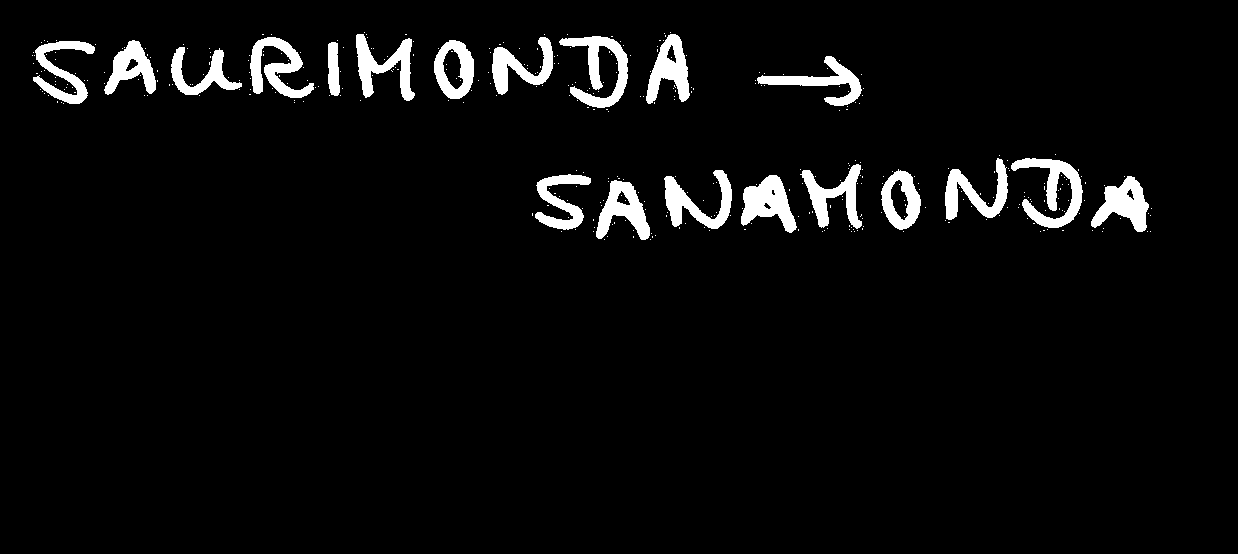 SAURIMONDA →
SANAMONDA